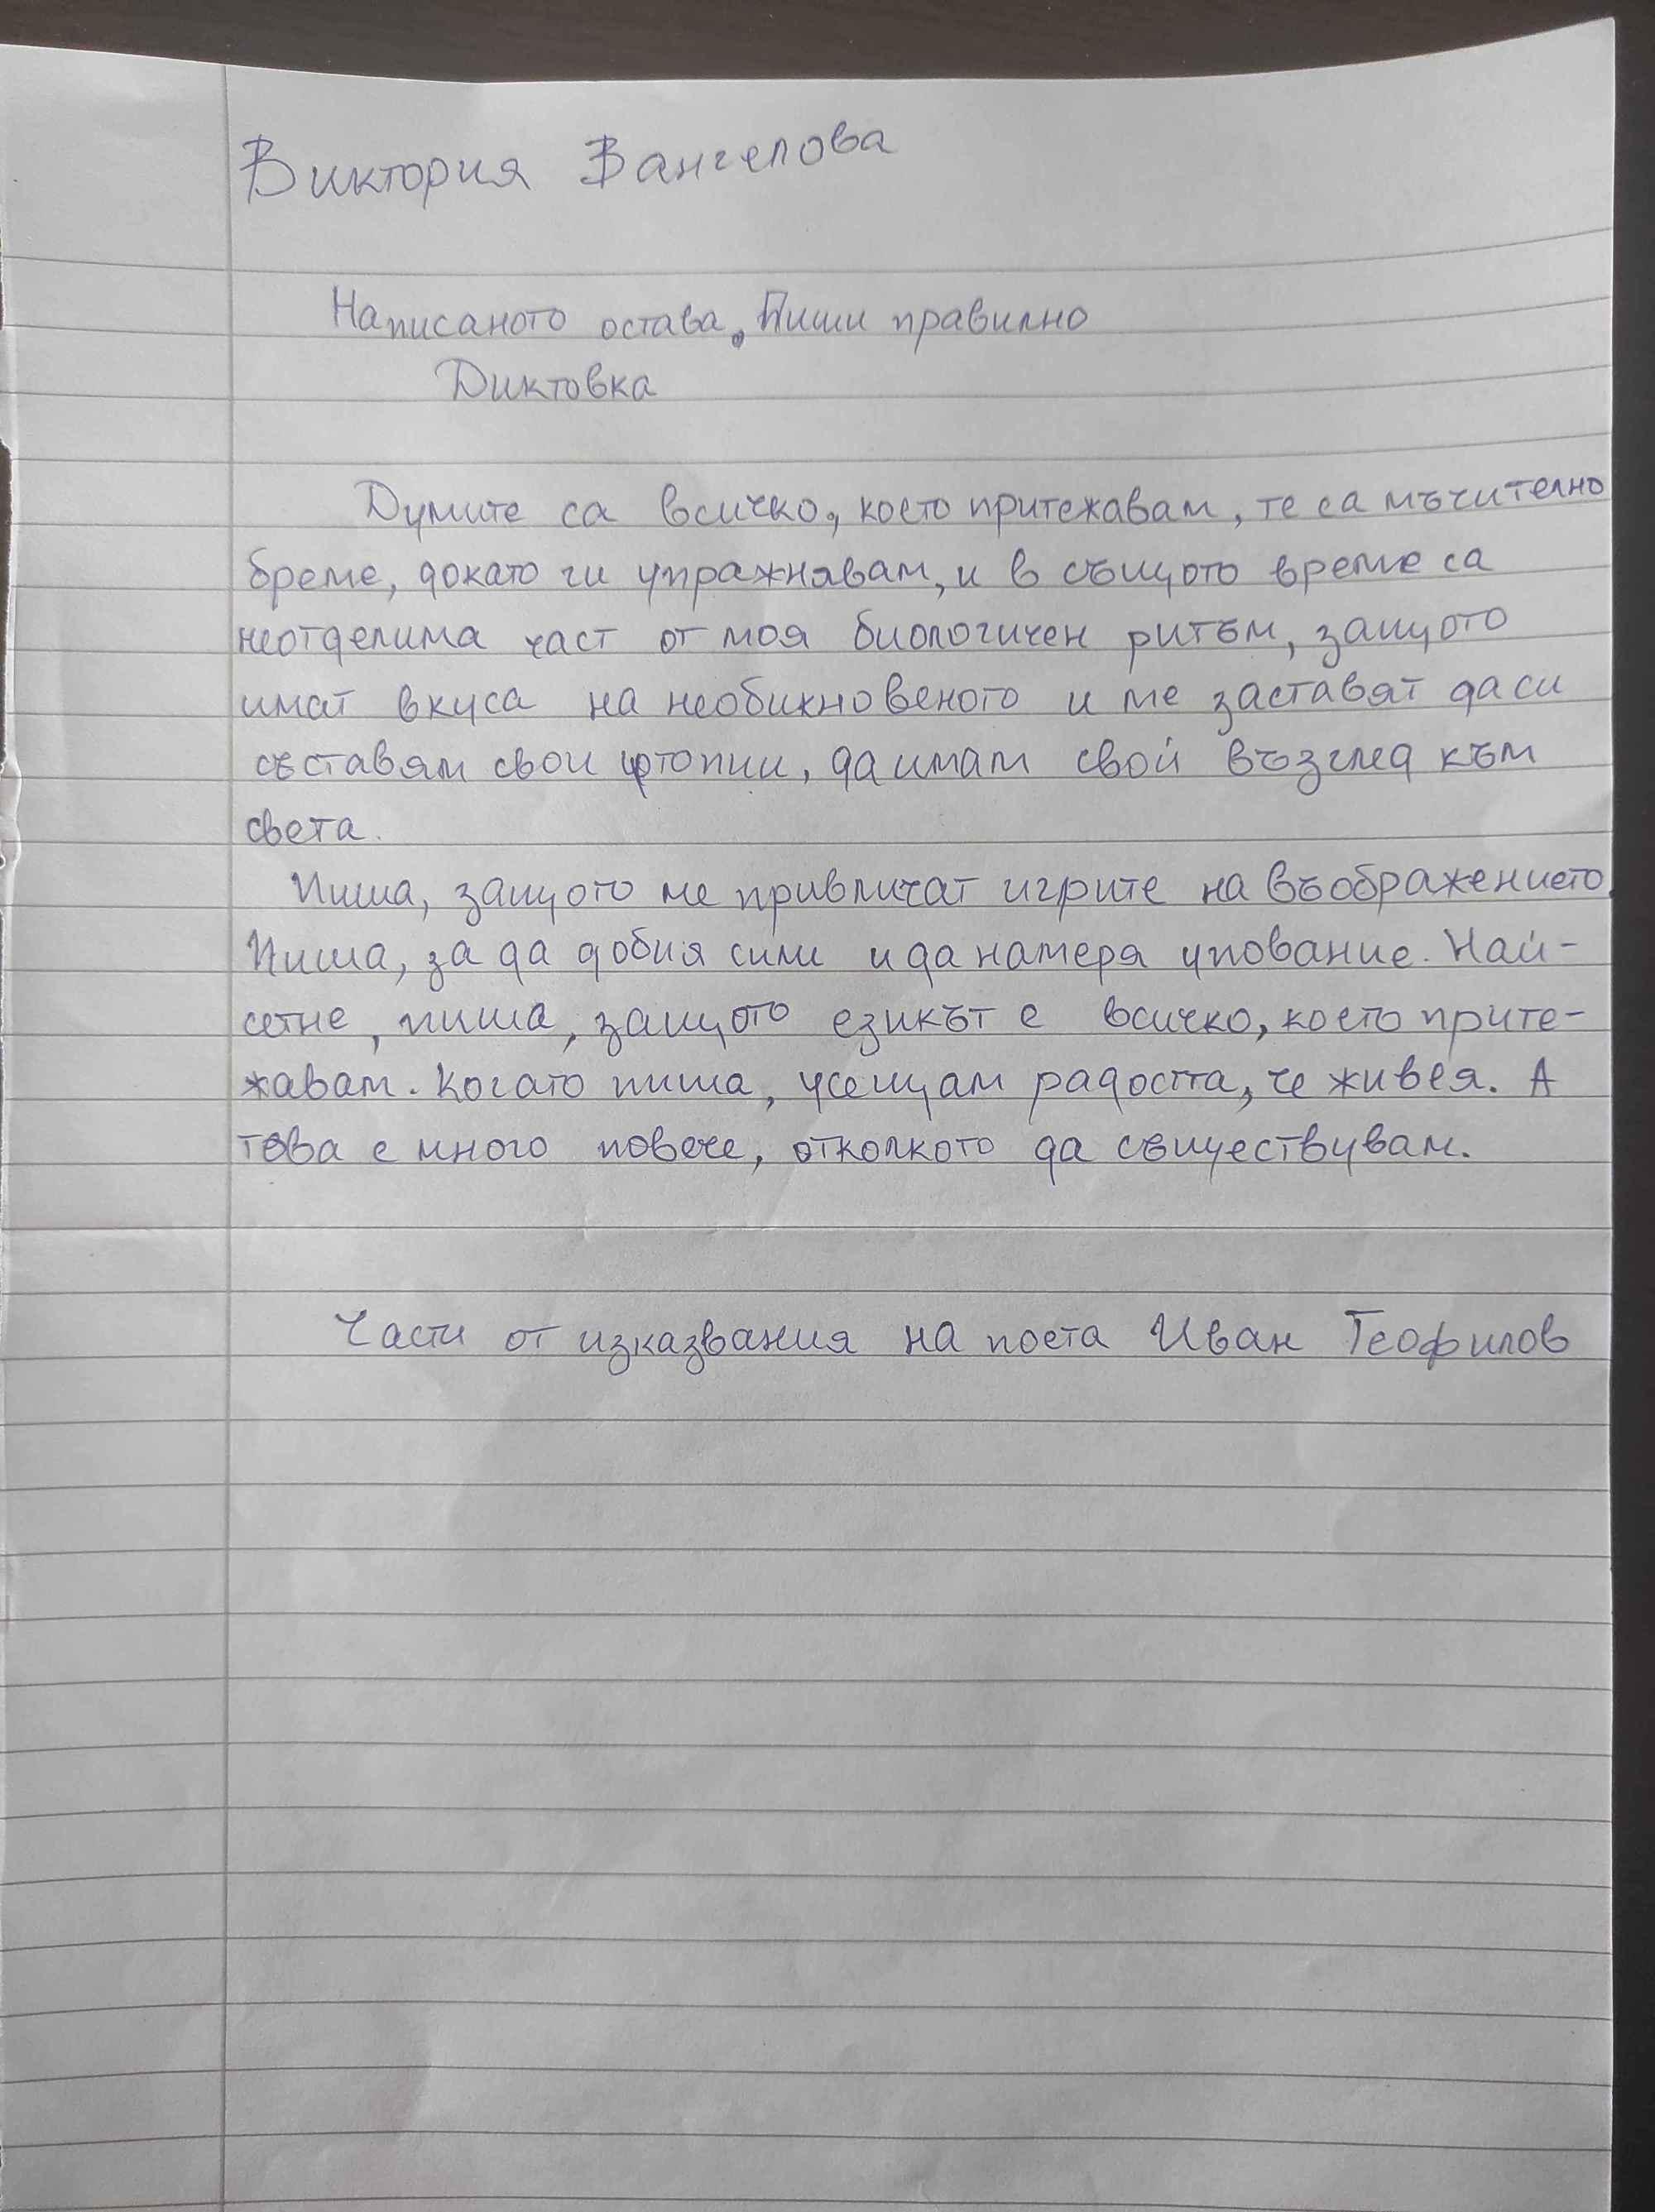 Виктория Вангелова
Написаното остава. Пиши правилно
Диктовка
Думите са всичко, което притежавам, те са мъчително
бреме, докато ги упражнявам, и в същото време са
неотделима част от моя биологичен ритъм, защото
имат вкуса на необикновеното и ме заставят да си
съставям свои утопии, да имам свой възглед към
света.
Пиша, защото ме привличат игрите на въображението.
Пиша, за да добия сили и да намеря упование. Най-
сетне, пиша, защото езикът е всичко, което прите-
жавам. Когато пиша, усещам радостта, че живея. А
това е много повече, отколкото да съществувам.
Части от изказвания на поета Иван Теофилов